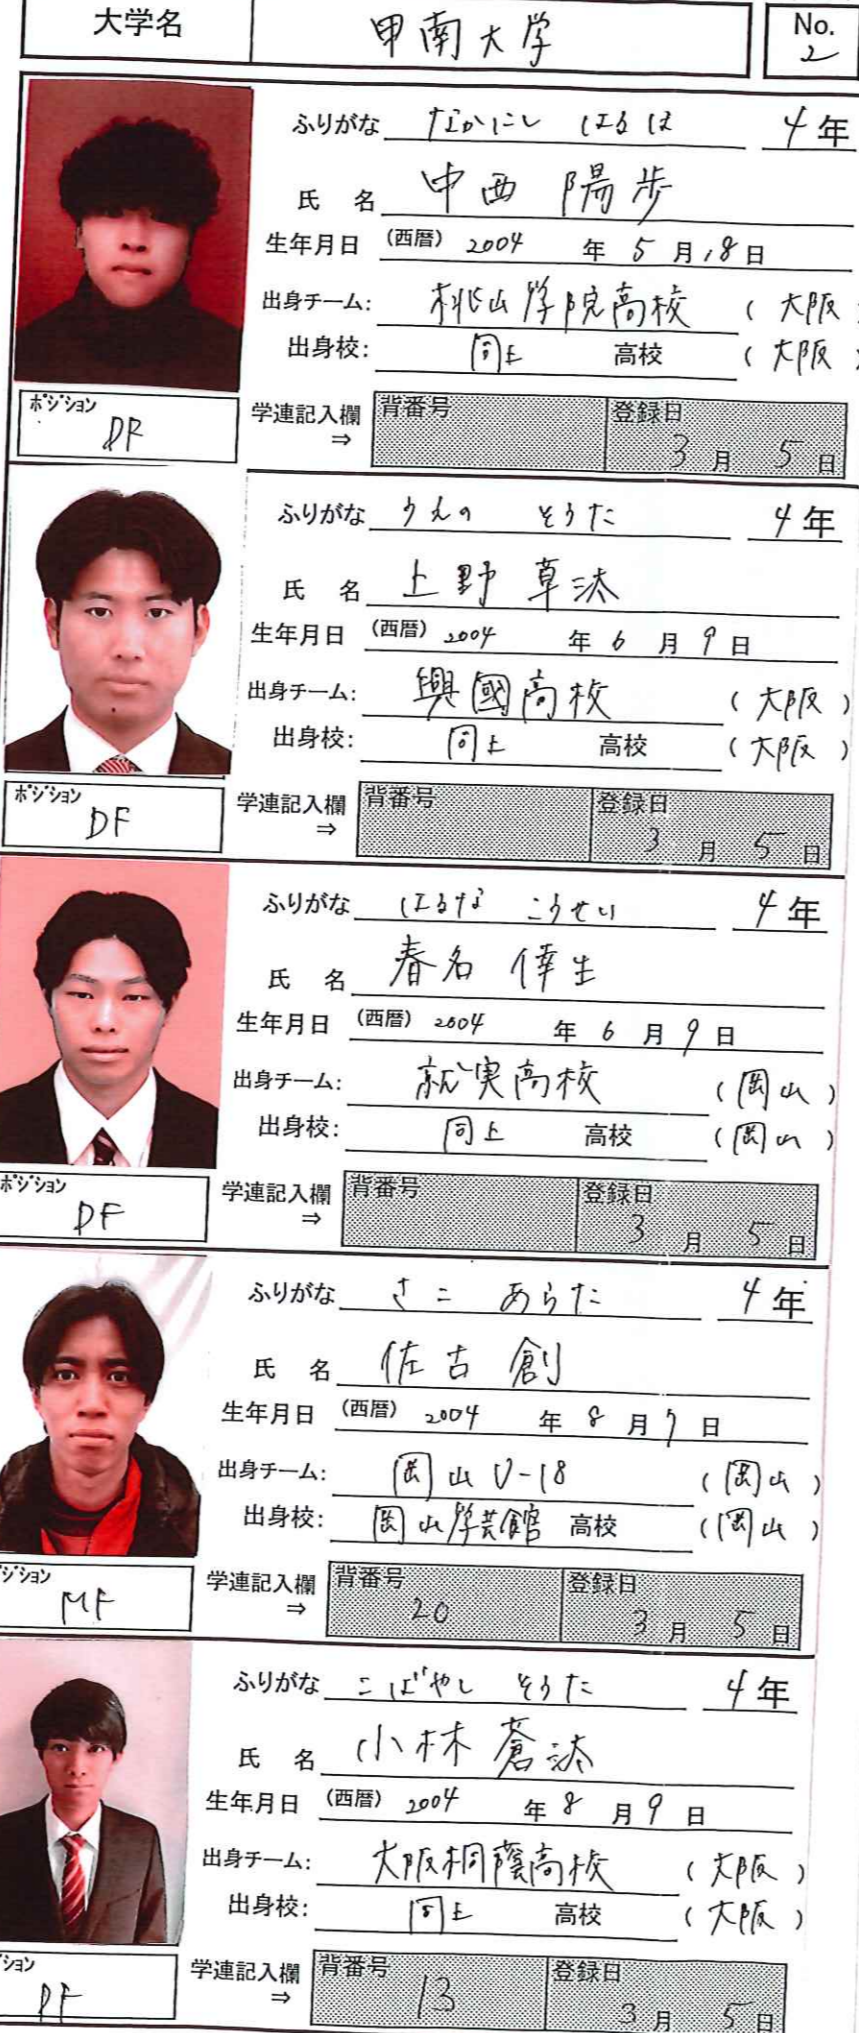 大学名 甲南大学 No. 2
ふりがな なかにし はるほ 4年
氏名 中西 陽歩
生年月日 (西暦) 2004 年 5 月 18 日
出身チーム: 桃山学院高校 (大阪
出身校: 同上 高校 (大阪)
ポジション DF
学連記入欄 ⇒ 背番号 登録日 3月 5日
ふりがな うえの そうた 4年
氏名 上野 草汰
生年月日 (西暦) 2004 年 6 月 9 日
出身チーム: 興國高校 (大阪)
出身校: 同上 高校 (大阪)
ポジション DF
学連記入欄 ⇒ 背番号 登録日 3月 5日
ふりがな はるな こうせい 4年
氏名 春名 倖生
生年月日 (西暦) 2004 年 6 月 9 日
出身チーム: 就実高校 (岡山)
出身校: 同上 高校 (岡山)
ポジション DF
学連記入欄 ⇒ 背番号 登録日 3月 5日
ふりがな さこ あらた 4年
氏名 佐古 創
生年月日 (西暦) 2004 年 8 月 7 日
出身チーム: 岡山U-18 (岡山)
出身校: 岡山学芸館 高校 (岡山)
ジション MF
学連記入欄 ⇒ 背番号 20 登録日 3月 5日
ふりがな こばやし そうた 4年
氏名 小林 蒼汰
生年月日 (西暦) 2004 年 8 月 9 日
出身チーム: 大阪桐蔭高校 (大阪)
出身校: 同上 高校 (大阪)
ション DF
学連記入欄 ⇒ 背番号 13 登録日 3月 5日